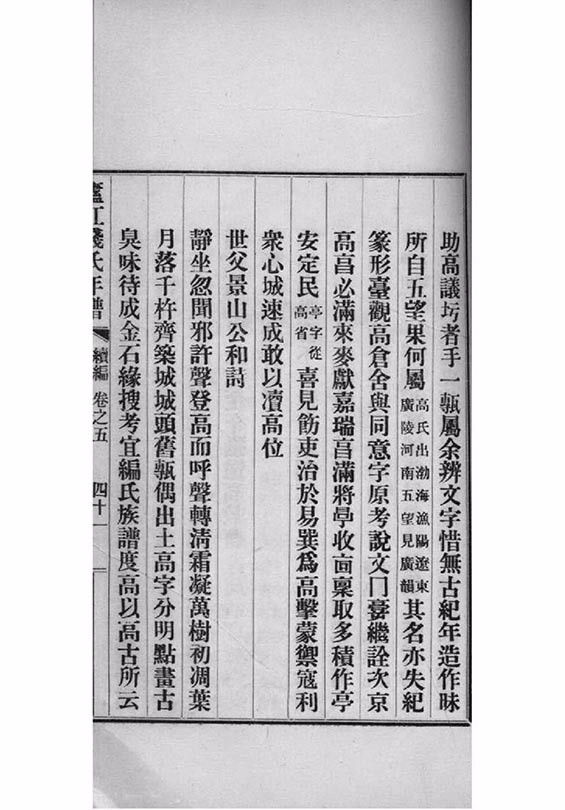 助高議圬者手一瓻屬余辨文字惜無古紀年造作昧
所自五望果何屬高氏出渤海漁陽遼東廣陵河南五望見廣韻其名亦失紀
篆形臺觀高倉舍與同意字原考說文冂𩫖繼詮次京
高㐭必滿來麥獻嘉瑞㐭滿將㐭收㐭稟取多積作亭
安定民亭字從高省喜見飭吏治於易巽爲高擊蒙禦寇利
衆心城速成敢以凟高位
世父景山公和詩
靜坐忽聞邪許聲登高而呼聲轉淸霜凝萬樹初凋葉
月落千杵齊築城城頭舊瓻偶出土高字分明點畫古
臭味待成金石緣搜考宜編氏族譜度高以高古所云
廬江錢氏年譜 續編 卷之五 四十